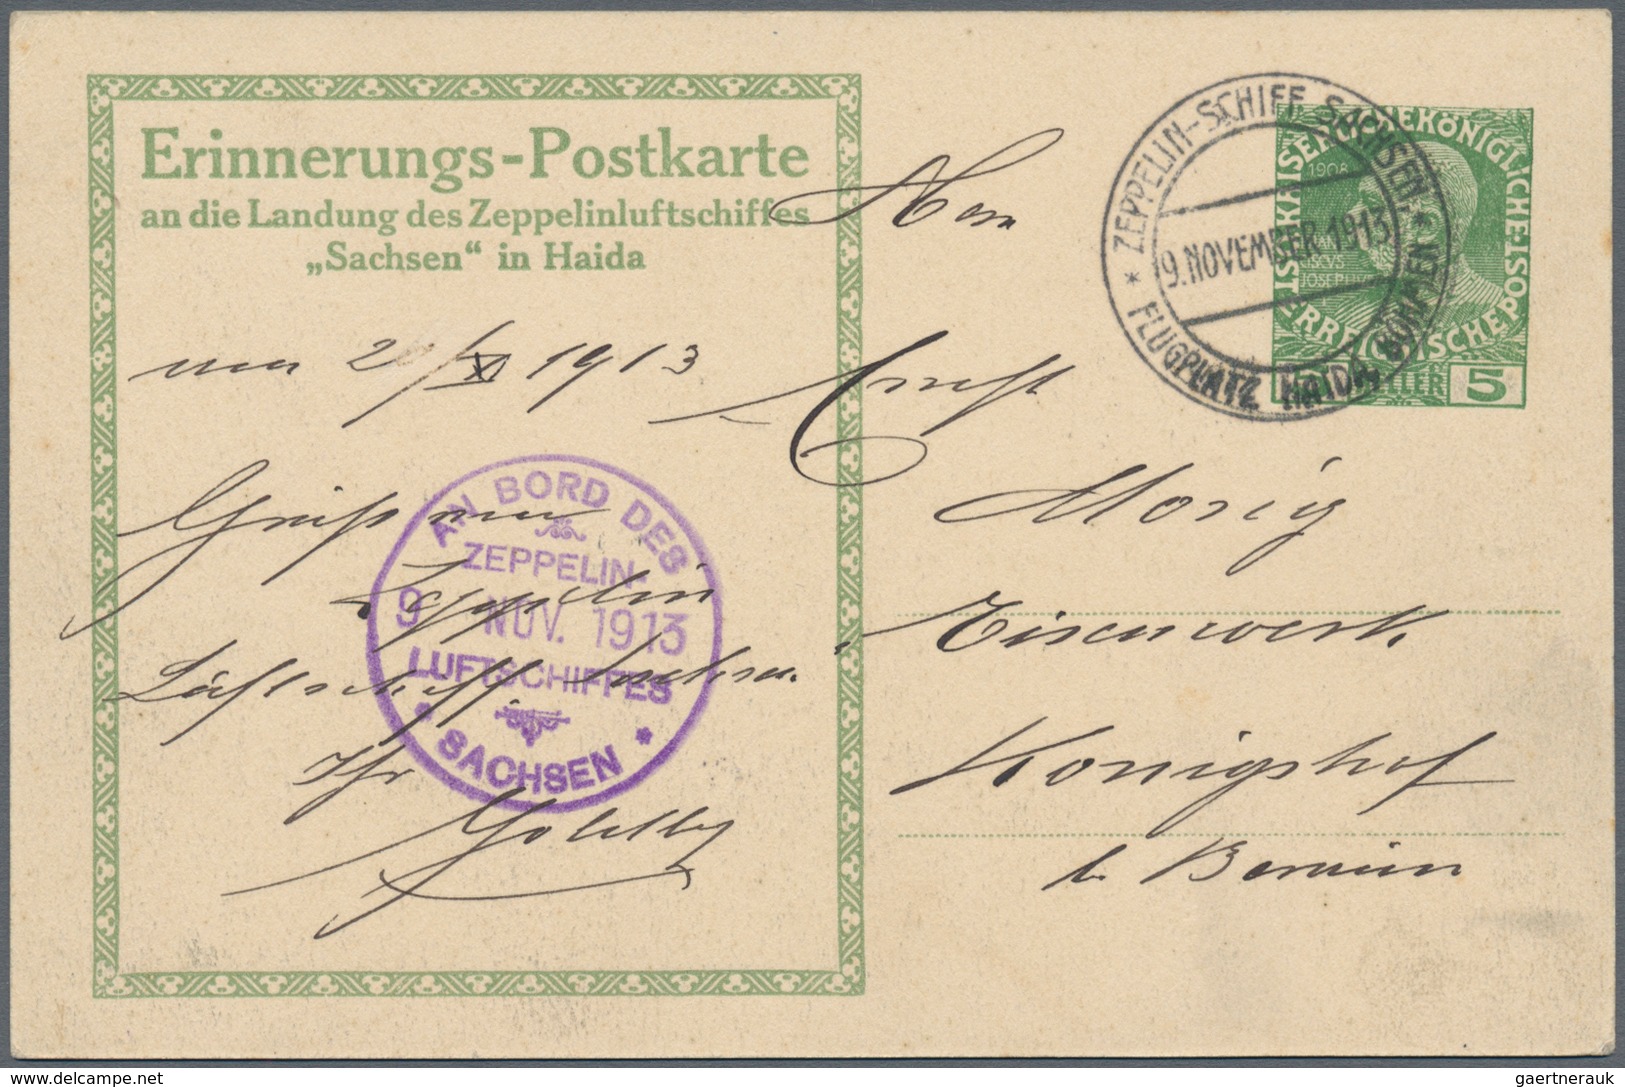 Erinnerungs-Postkarte
an die Landung des Zeppelinluftschiffes
„Sachsen“ in Haida
1913
Gruß
Zeppelin
Luftschiff Sachsen
Ihr
AN BORD DES
ZEPPELIN-
9 NOV. 1913
LUFTSCHIFFES
* SACHSEN *
* ZEPPELIN-SCHIFF SACHSEN. *
9. NOVEMBER 1913
FLUGPLATZ HAIDA, BÖHMEN
KAISERLICHE KÖNIGLICHE ÖSTERREICHISCHE POST
1908
FRANCISCVS
JOSEPHVS I
5 HELLER 5
Herrn
Ernst
Monig
Eisenwerk
Königshof
b. Beraun
www.delcampe.net
gaertnerauk